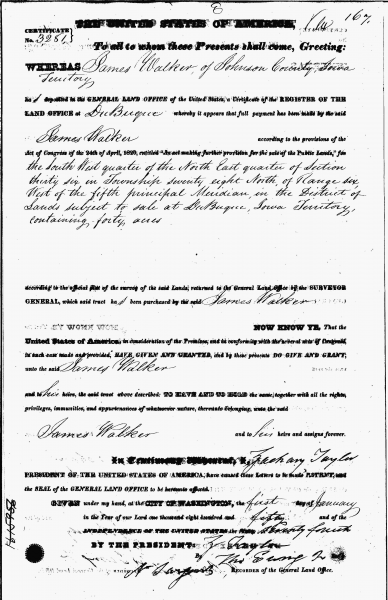 8
167.
THE UNITED STATES OF AMERICA,
CERTIFICATE
No. 3251
To all to whom these Presents shall come, Greeting:
WHEREAS James Walker, of Johnson County, Iowa
Territory
ha s deposited in the GENERAL LAND OFFICE of the United States, a Certificate of the REGISTER OF THE
LAND OFFICE at DuBuque whereby it appears that full payment has been made by the said
James Walker according to the provisions of the
Act of Congress of the 24th of April, 1820, entitled "An act making further provision for the sale of the Public Lands," for
the South West quarter of the North East quarter of Section
thirty six in Township seventy eight North, of Range six
West of the fifth principal Meridian, in the District of
Lands subject to sale at DuBuque, Iowa Territory,
containing, forty, acres
according to the official plat of the survey of the said Lands, returned to the General Land Office by the SURVEYOR
GENERAL, which said tract ha s been purchased by the said James Walker
NOW KNOW YE, That the
United States of America, in consideration of the Premises, and in conformity with the several acts of Congress,
in such case made and provided, HAVE GIVEN AND GRANTED, and by these presents DO GIVE AND GRANT,
unto the said James Walker
and to his heirs, the said tract above described: TO HAVE AND TO HOLD the same, together with all the rights,
privileges, immunities, and appurtenances of whatsoever nature, thereunto belonging, unto the said
James Walker and to his heirs and assigns forever.
In Testimony Whereof, I, Zachary Taylor
PRESIDENT OF THE UNITED STATES OF AMERICA, have caused these Letters to be made PATENT, and
the SEAL of the GENERAL LAND OFFICE to be hereunto affixed.
GIVEN under my hand, at the CITY OF WASHINGTON, the first day of January
in the Year of our Lord one thousand eight hundred and fifty and of the
INDEPENDENCE OF THE UNITED STATES the Seventy fourth
BY THE PRESIDENT: Z. Taylor
RECORDER of the General Land Office.